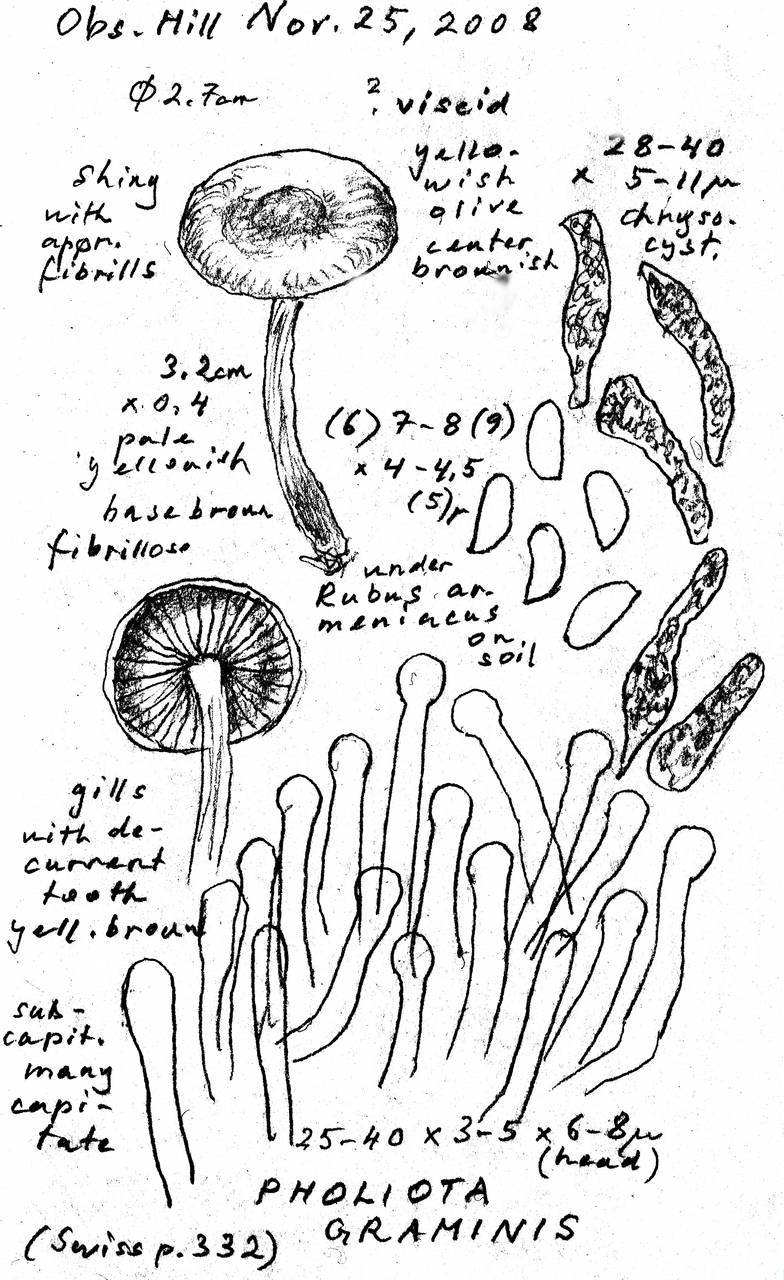 Obs. Hill Nov. 25, 2008
Ø 2.7cm
? viscid
yello-
wish
olive
center
brownish
28-40
x 5-11µ
chryso-
cyst.
Shiny
with
appr.
fibrills
3.2cm
x 0,4
pale
yellowish
base brown
fibrillose
(6) 7-8 (9)
x 4-4,5
(5)µ
under
Rubus ar-
meniacus
on
soil
gills
with de-
current
tooth
yell. brown
sub-
capit.
many
capi-
tate
25-40 x 3-5 x 6-8µ
(head)
PHOLIOTA
GRAMINIS
(Swiss p. 332)